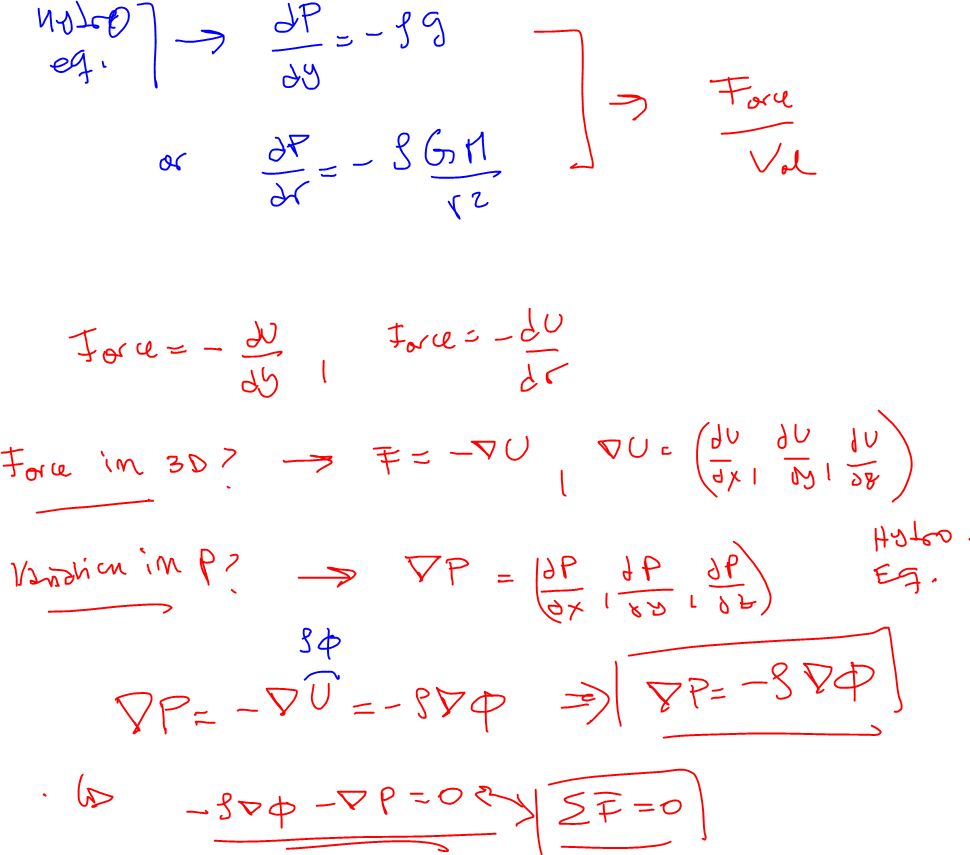 Hydro eq. ] → dP/dy = - ρg
or dP/dr = - ρGM/r² ] → Force/Vol
Force = - dU/dy , Force = - dU/dr
Force in 3D? → F = -∇U , ∇U = (dU/dx, dU/dy, dU/dz)
Variation in P? → ∇P = (dP/dx, dP/dy, dP/dz) Hydro. Eq.
ρΦ
∇P = -∇U = -ρ∇Φ ⇒ ∇P = -ρ∇Φ
-ρ∇Φ - ∇P = 0 ↔ ΣF = 0